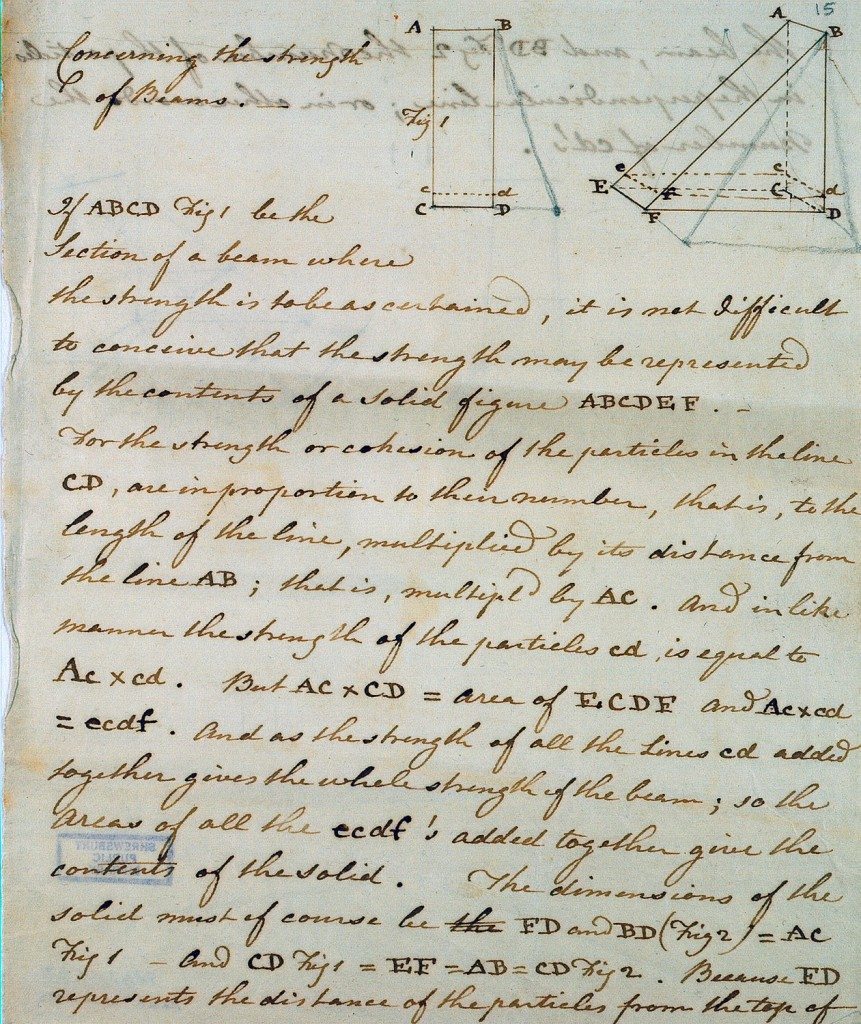 15
Concerning the strength
of Beams. —
A B
Fig 1
c d
C D
A B
e c
E f C d
F D
If ABCD Fig 1 be the
Section of a beam where
the strength is to be ascertained, it is not difficult
to conceive that the strength may be represented
by the contents of a solid figure ABCDEF. –
For the strength or cohesion of the particles in the line
CD, are in proportion to their number, that is, to the
length of the line, multiplied by its distance from
the line AB; that is, multipld by AC. And in like
manner the strength of the particles cd, is equal to
Ac x cd. But AC x CD = area of ECDF and Ac x cd
= ecdf. And as the strength of all the Lines cd added
together gives the whole strength of the beam; so the
areas of all the ecdf's added together give the
contents of the solid. The dimensions of the
solid must of course be the FD and BD (Fig 2) = AC
Fig 1 – and CD Fig 1 = EF = AB = CD Fig 2. Because FD
represents the distance of the particles from the top of
SHREWSBURY
PUBLIC